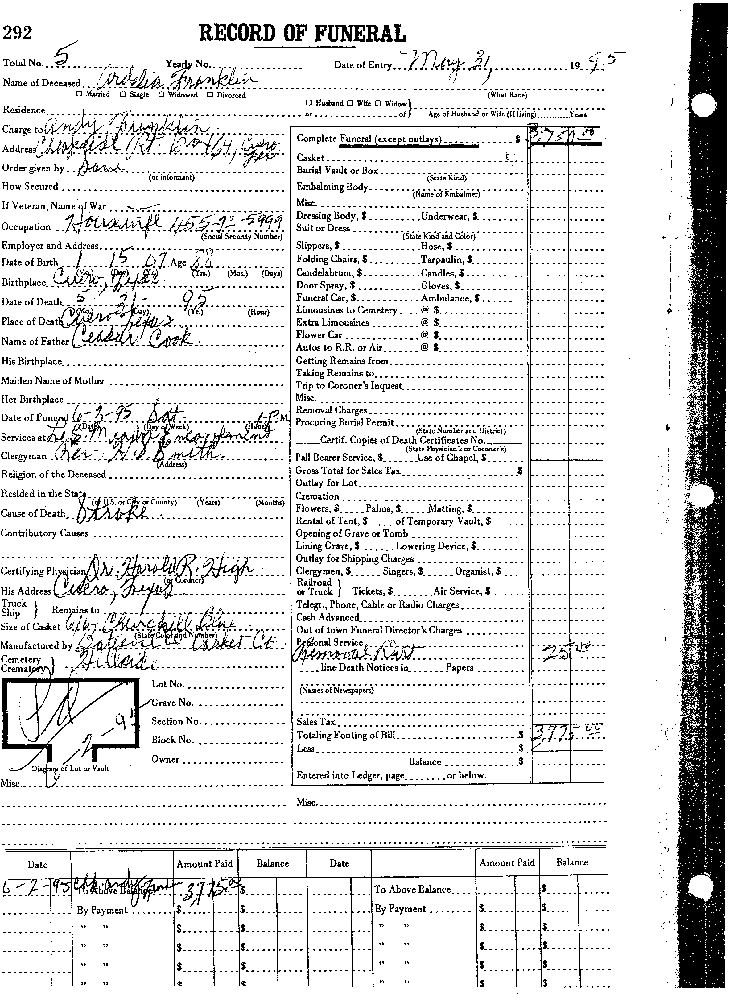 292 RECORD OF FUNERAL
Total No. 5 Yearly No. Date of Entry May 31, 1995
Name of Deceased Franklin
☐ Married ☐ Single ☐ Widowed ☐ Divorced (What Race)
Residence ☐ Husband ☐ Wife ☐ Widow or of Age of Husband or Wife (If living) Years
Charge to
Address Rt Box 64, Cuero
Order given by Same
(or informant)
How Secured
If Veteran, Name of War
Occupation Housewife
(Social Security Number)
Employer and Address
Date of Birth 1 15 07 Age 88
(Yrs.) (Mos.) (Days)
Birthplace Cuero, Texas
Date of Death 5 31 95
(Yr.) (Hour)
Place of Death Cuero Texas
Name of Father Cook
His Birthplace
Maiden Name of Mother
Her Birthplace
Date of Funeral 6-3-95 Sat P.M.
(Date) (Day of Week) (Hour)
Services at
Clergyman Rev. Smith
(Address)
Religion of the Deceased
Resided in the State
(or U.S. or City or County) (Years) (Months)
Cause of Death Stroke
Contributory Causes
Certifying Physician Dr. Harold R. High
(or Coroner)
His Address Cuero, Texas
Truck Ship } Remains to
Size of Casket 6/6 Churchill Blue
(State Color and Number)
Manufactured by Casket Co.
Cemetery Crematory }
Lot No.
Grave No.
Section No.
Block No.
Owner
6-2-95
Diagram of Lot or Vault
Misc.
Complete Funeral (except outlays) $ 3,750.00
Casket
Burial Vault or Box
(State Kind)
Embalming Body
(Name of Embalmer)
Misc.
Dressing Body, $ Underwear, $
Suit or Dress
(State Kind and Color)
Slippers, $ Hose, $
Folding Chairs, $ Tarpaulin, $
Candelabrum, $ Candles, $
Door Spray, $ Gloves, $
Funeral Car, $ Ambulance, $
Limousines to Cemetery @ $
Extra Limousines @ $
Flower Car @ $
Autos to R.R. or Air @ $
Getting Remains from
Taking Remains to
Trip to Coroner's Inquest
Misc.
Removal Charges
Procuring Burial Permit
(State Number and District)
Certif. Copies of Death Certificates No.
(State Physician's or Coroner's)
Pall Bearer Service, $ Use of Chapel, $
Gross Total for Sales Tax $
Outlay for Lot
Cremation
Flowers, $ Palms, $ Matting, $
Rental of Tent, $ of Temporary Vault, $
Opening of Grave or Tomb
Lining Grave, $ Lowering Device, $
Outlay for Shipping Charges
Clergymen, $ Singers, $ Organist, $
Railroad or Truck } Tickets, $ Air Service, $
Telegr., Phone, Cable or Radio Charges
Cash Advanced
Out of town Funeral Director's Charges
Personal Service
25.00
line Death Notices in Papers
(Names of Newspapers)
Sales Tax
Totaling Footing of Bill $ 3,775.00
Less $
Balance $
Entered into Ledger, page or below.
Misc.
Date Amount Paid Balance Date Amount Paid Balance
6-2-95 To Above Balance 3,775.00 $ To Above Balance $
By Payment $ $ By Payment $ $
" " $ $ " " $ $
" " $ $ " " $ $
" " $ $ " " $ $
" " $ $ " " $ $